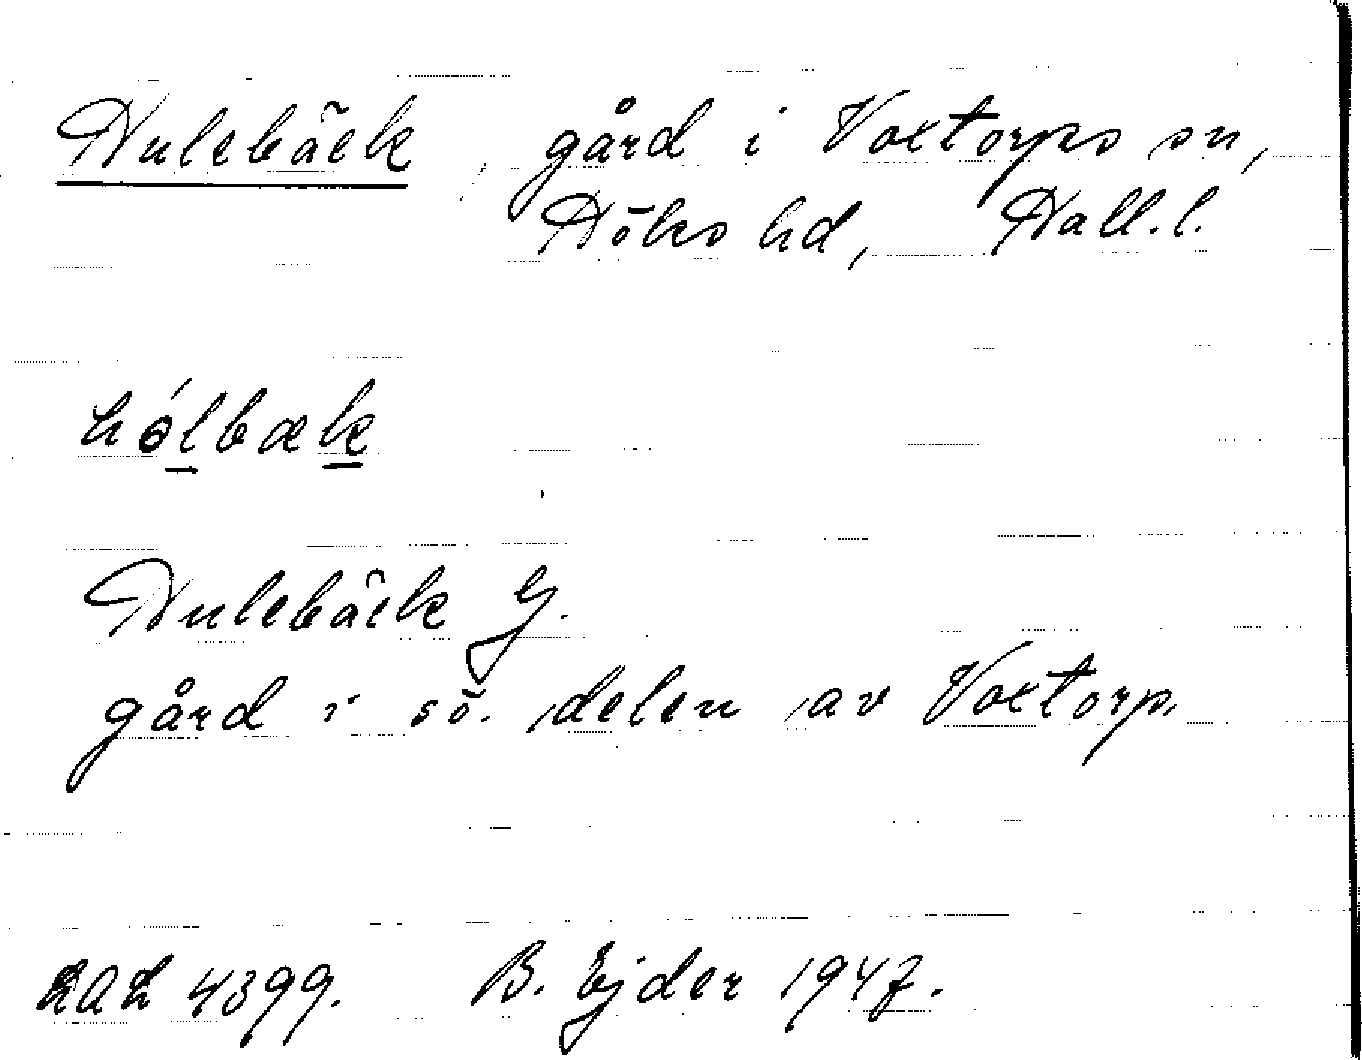 Hulebäck, gård i Voxtorps sn,
Höks hd, Hall.l.
hólbæk
Hulebäck G.
gård i sö. delen av Voxtorp.
4399. B. Ejder 1947.